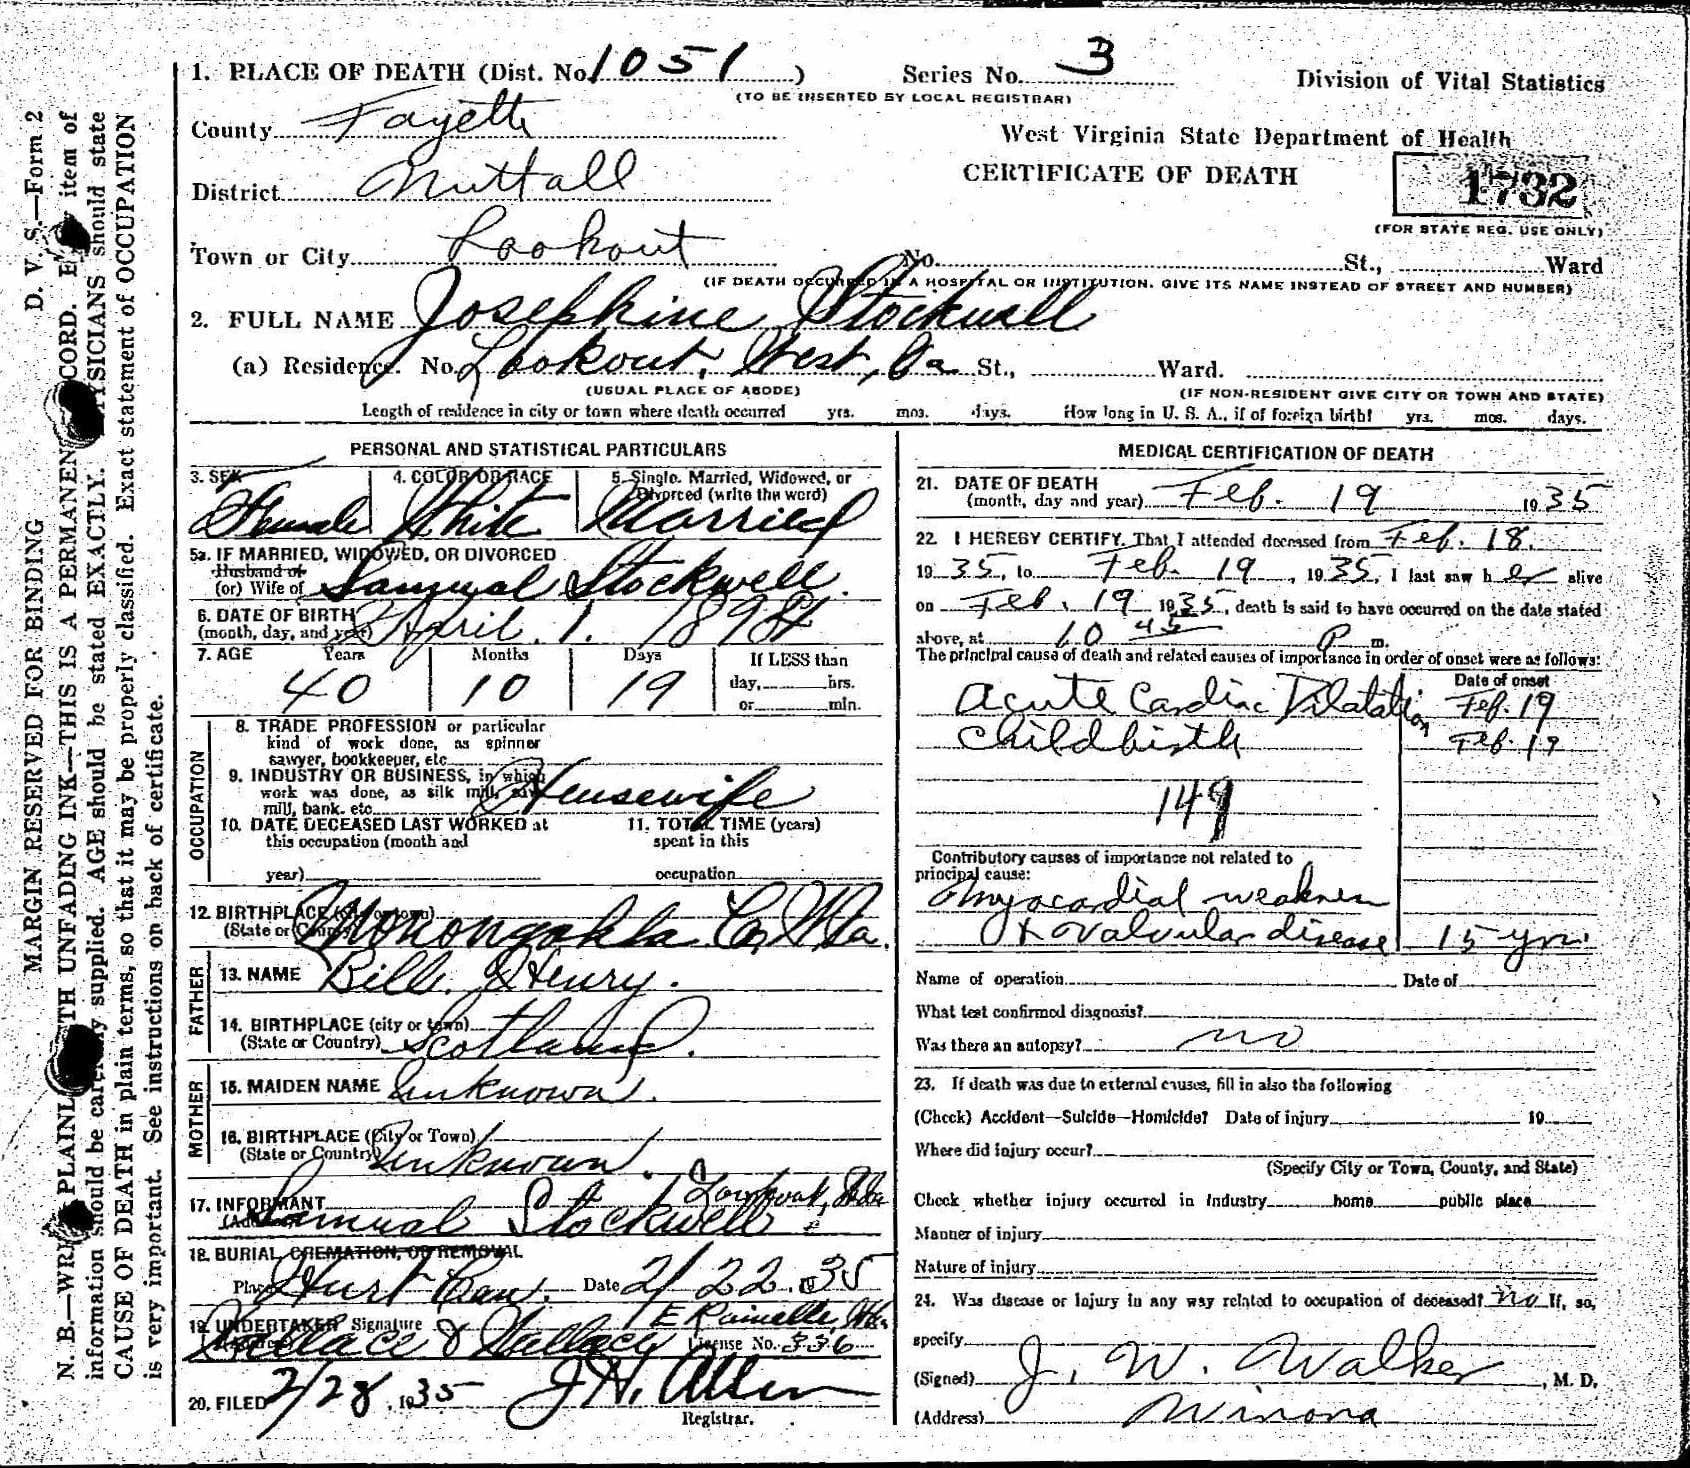 D. V. S.—Form 2
MARGIN RESERVED FOR BINDING
N. B.—WRITE PLAINLY WITH UNFADING INK—THIS IS A PERMANENT RECORD. Every item of
information should be carefully supplied. AGE should be stated EXACTLY. PHYSICIANS should state
CAUSE OF DEATH in plain terms, so that it may be properly classified. Exact statement of OCCUPATION
is very important. See instructions on back of certificate.
1. PLACE OF DEATH (Dist. No. 1051) Series No. 3 Division of Vital Statistics
(TO BE INSERTED BY LOCAL REGISTRAR)
County Fayette
West Virginia State Department of Health
District Nuttall
CERTIFICATE OF DEATH
1732
(FOR STATE REG. USE ONLY)
Town or City Lookout No. St., Ward
(IF DEATH OCCURRED IN A HOSPITAL OR INSTITUTION, GIVE ITS NAME INSTEAD OF STREET AND NUMBER)
2. FULL NAME Josephine Stockwell
(a) Residence. No. Lookout, West, Va St., Ward.
(USUAL PLACE OF ABODE) (IF NON-RESIDENT GIVE CITY OR TOWN AND STATE)
Length of residence in city or town where death occurred yrs. mos. days. How long in U. S. A., if of foreign birth? yrs. mos. days.
PERSONAL AND STATISTICAL PARTICULARS
3. SEX 4. COLOR OR RACE 5. Single, Married, Widowed, or
Divorced (write the word)
Female White Married
5a. IF MARRIED, WIDOWED, OR DIVORCED
Husband of
(or) Wife of Samual Stockwell.
6. DATE OF BIRTH
(month, day, and year) April. 1. 1894
7. AGE Years Months Days If LESS than
40 10 19 day, hrs.
or min.
OCCUPATION
8. TRADE PROFESSION or particular
kind of work done, as spinner
sawyer, bookkeeper, etc
9. INDUSTRY OR BUSINESS, in which
work was done, as silk mill, saw
mill, bank, etc. Housewife
10. DATE DECEASED LAST WORKED at 11. TOTAL TIME (years)
this occupation (month and spent in this
year) occupation
12. BIRTHPLACE (city or town)
(State or Country) Monongahla Co, W Va.
FATHER
13. NAME Bill. Henry.
14. BIRTHPLACE (city or town)
(State or Country) Scotland.
MOTHER
15. MAIDEN NAME Unknown.
16. BIRTHPLACE (City or Town)
(State or Country) Unknown.
17. INFORMANT Lookout, W Va
(Address) Samual Stockwell
18. BURIAL, CREMATION, OR REMOVAL
Place Hurt Cem. Date 2/22.1935
19. UNDERTAKER Signature E Rainelle, W Va
Wallace & Wallace License No. 336
20. FILED 2/28, 1935 J H. Allen
Registrar.
MEDICAL CERTIFICATION OF DEATH
21. DATE OF DEATH
(month, day and year) Feb. 19 1935
22. I HEREBY CERTIFY, That I attended deceased from Feb. 18.
1935, to Feb. 19, 1935, I last saw her alive
on Feb. 19 1935, death is said to have occurred on the date stated
above, at 10 45 P m.
The principal cause of death and related causes of importance in order of onset were as follows:
Date of onset
Acute Cardiac Dilatation Feb. 19
Childbirth Feb. 19
149
Contributory causes of importance not related to
principal cause:
Myocardial weakness
& valvular disease 15 yrs.
Name of operation Date of
What test confirmed diagnosis?
Was there an autopsy? no
23. If death was due to external causes, fill in also the following
(Check) Accident—Suicide—Homicide? Date of injury 19
Where did injury occur?
(Specify City or Town, County, and State)
Check whether injury occurred in industry home public place
Manner of injury
Nature of injury
24. Was disease or injury in any way related to occupation of deceased? no If, so,
specify
(Signed) J. W. Walker, M. D.
(Address) Winona